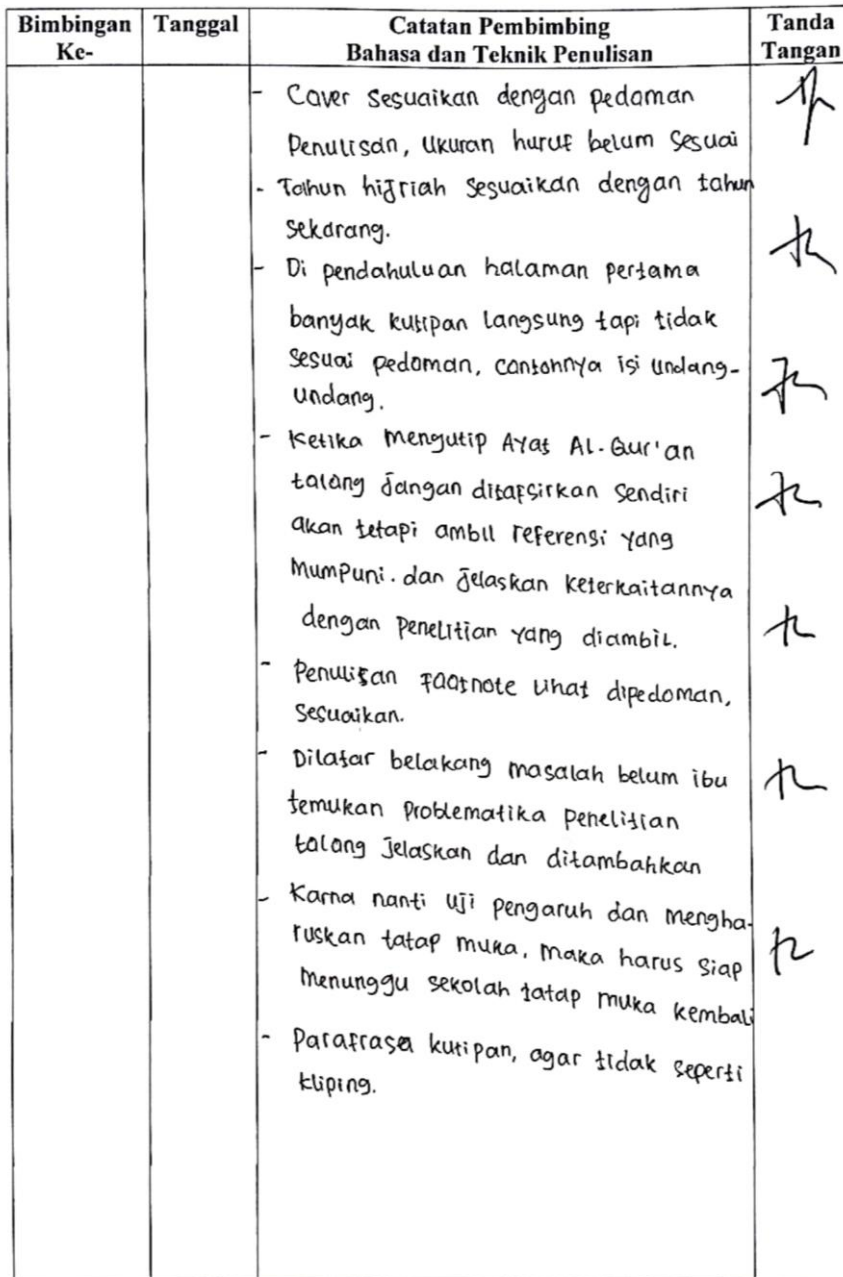 Bimbingan Ke-
Tanggal
Catatan Pembimbing
Bahasa dan Teknik Penulisan
Tanda Tangan
- Cover Sesuaikan dengan pedoman
Penulisan, Ukuran huruf belum Sesuai
- Tahun hijriah Sesuaikan dengan tahun
Sekarang.
- Di pendahuluan halaman pertama
banyak kutipan Langsung tapi tidak
Sesuai pedoman, contohnya isi undang-
undang.
- Ketika Mengutip Ayat Al-Qur'an
tolong Jangan ditafsirkan Sendiri
akan tetapi ambil referensi yang
Mumpuni. dan Jelaskan Keterkaitannya
dengan Penelitian yang diambil.
- Penulisan Footnote Lihat dipedoman,
Sesuaikan.
- Dilatar belakang masalah belum ibu
temukan Problematika penelitian
tolong Jelaskan dan ditambahkan
- Karna nanti Uji pengaruh dan mengha-
ruskan tatap muka, maka harus Siap
Menunggu sekolah tatap muka kembali
- Parafrasa kutipan, agar tidak seperti
kliping.